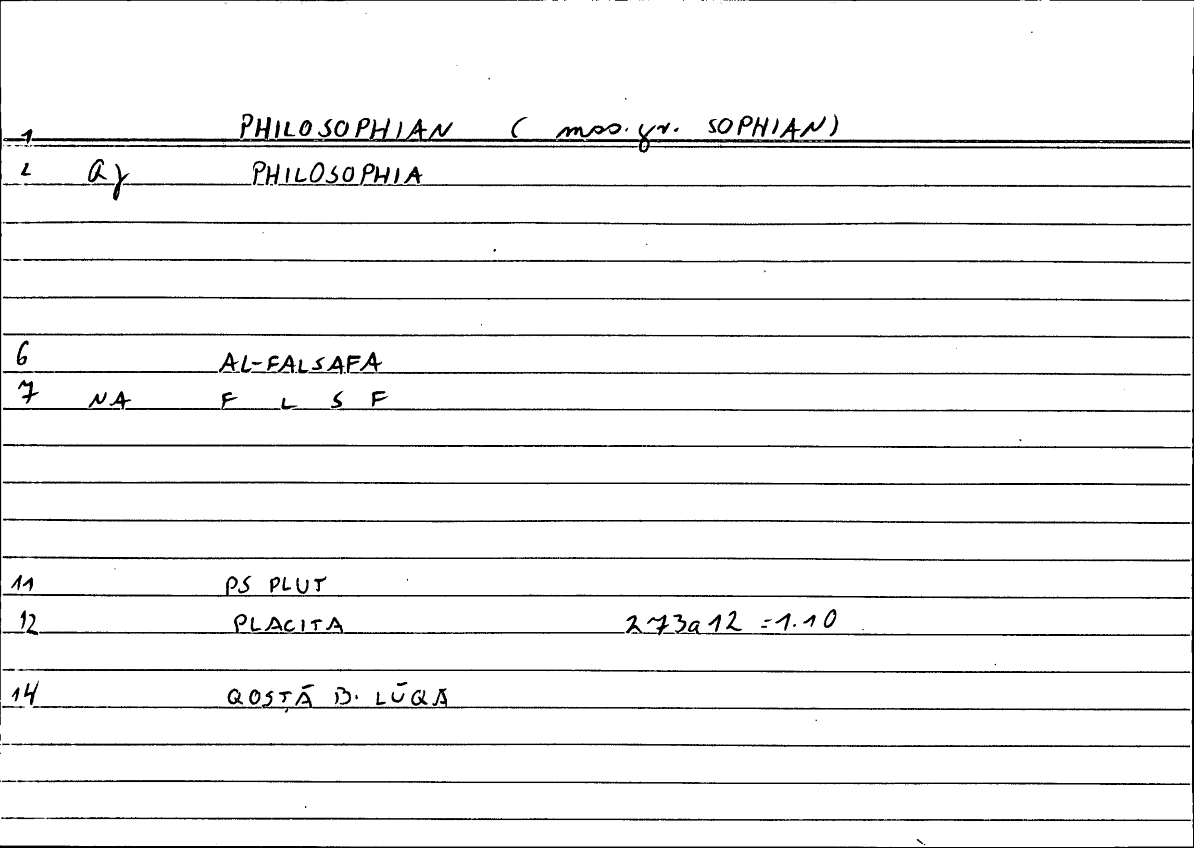 1 PHILOSOPHIAN ( mss. gr. SOPHIAN)
2 aj PHILOSOPHIA
6 AL-FALSAFA
7 NA F L S F
11 PS PLUT
12 PLACITA 273a12 =1.10
14 QOSṬĀ B. LŪQĀ